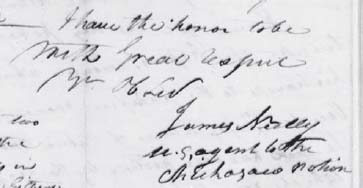 I have the honor to be
With Great respec
Yr. Ob Sv
James Neelly
U.S. agent to the
Chickasaw nation
two
the
in